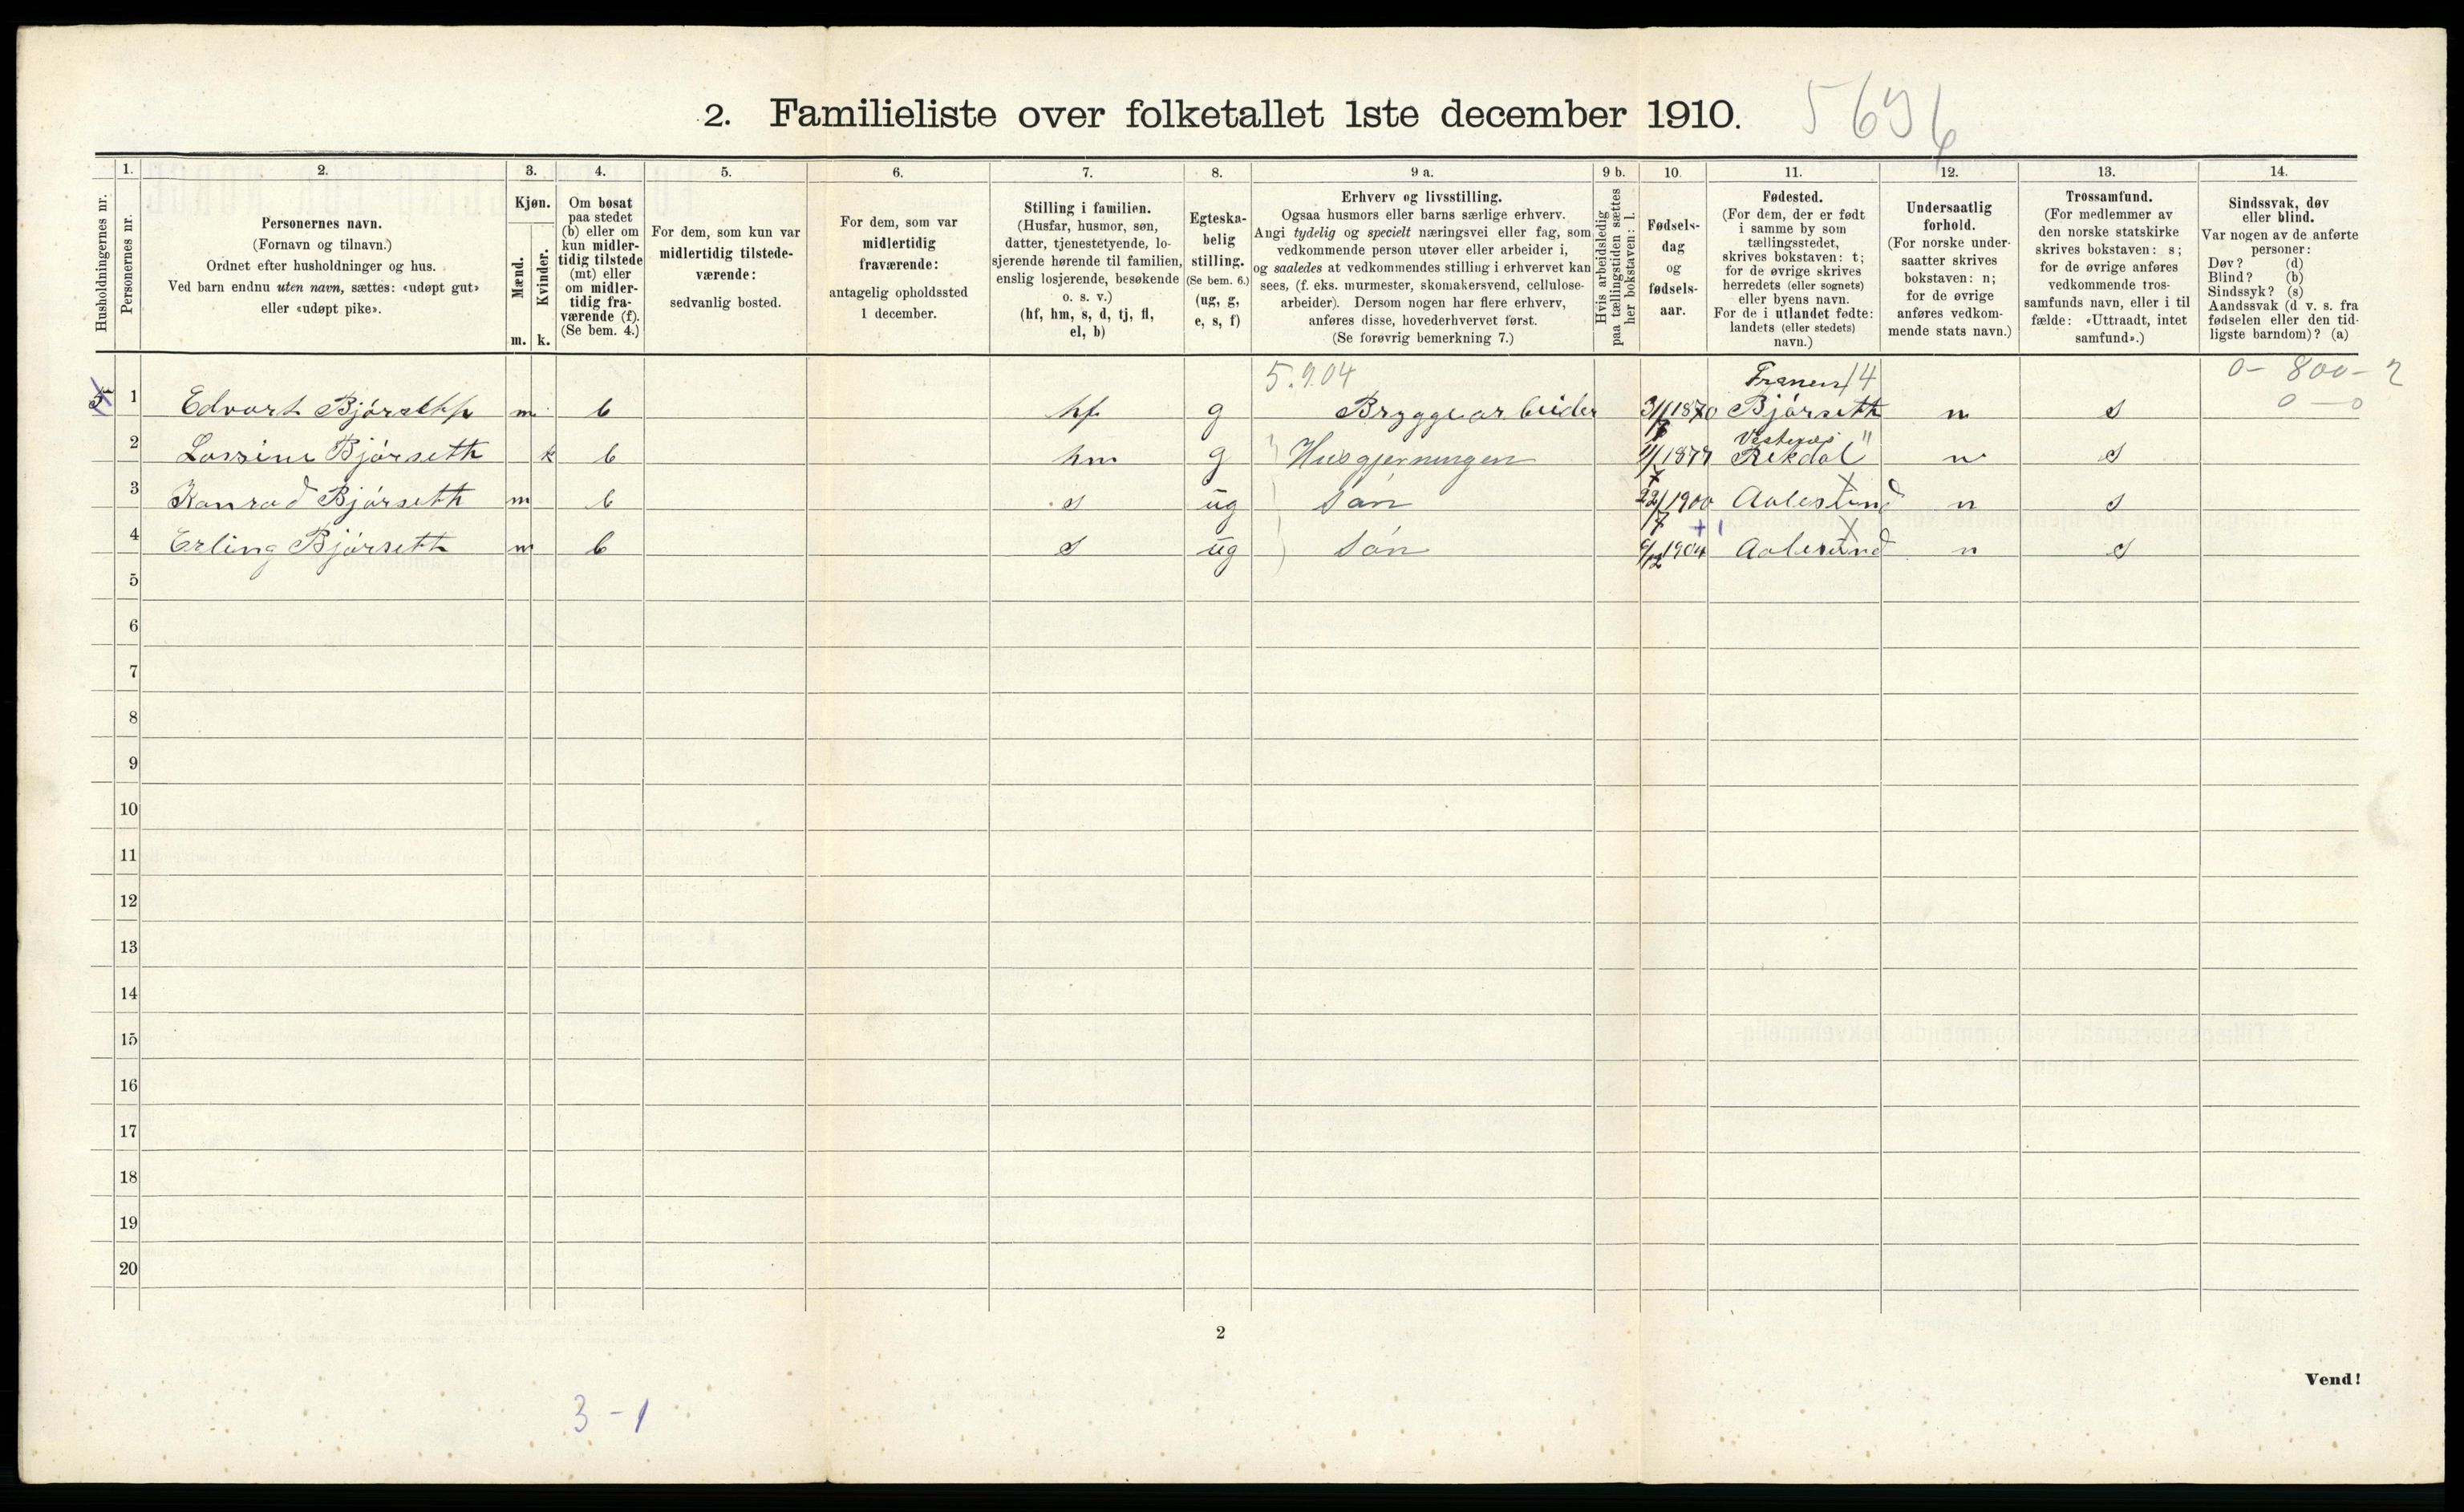 2. Familieliste over folketallet 1ste december 1910.
1. 2. 3. 4. 5. 6. 7. 8. 9 a. 9 b. 10. 11. 12. 13. 14.
Husholdningernes nr.
Personernes nr.
Personernes navn.
(Fornavn og tilnavn.)
Ordnet efter husholdninger og hus.
Ved barn endnu uten navn, sættes: «udøpt gut»
eller «udøpt pike».
Kjøn.
Mænd.
Kvinder.
m. k.
Om bosat
paa stedet
(b) eller om
kun midler-
tidig tilstede
(mt) eller
om midler-
tidig fra-
værende (f).
(Se bem. 4.)
For dem, som kun var
midlertidig tilstede-
værende:
sedvanlig bosted.
For dem, som var
midlertidig
fraværende:
antagelig opholdssted
1 december.
Stilling i familien.
(Husfar, husmor, søn,
datter, tjenestetyende, lo-
sjerende hørende til familien,
enslig losjerende, besøkende
o. s. v.)
(hf, hm, s, d, tj, fl,
el, b)
Egteska-
belig
stilling.
(Se bem. 6.)
(ug, g,
e, s, f)
Erhverv og livsstilling.
Ogsaa husmors eller barns særlige erhverv.
Angi tydelig og specielt næringsvei eller fag, som
vedkommende person utøver eller arbeider i,
og saaledes at vedkommendes stilling i erhvervet kan
sees, (f. eks. murmester, skomakersvend, cellulose-
arbeider). Dersom nogen har flere erhverv,
anføres disse, hovederhvervet først.
(Se forøvrig bemerkning 7.)
Hvis arbeidsledig
paa tællingstiden sættes
her bokstaven: l.
Fødsels-
dag
og
fødsels-
aar.
Fødested.
(For dem, der er født
i samme by som
tællingsstedet,
skrives bokstaven: t;
for de øvrige skrives
herredets (eller sognets)
eller byens navn.
For de i utlandet fødte:
landets (eller stedets)
navn.)
Undersaatlig
forhold.
(For norske under-
saatter skrives
bokstaven: n;
for de øvrige
anføres vedkom-
mende stats navn.)
Trossamfund.
(For medlemmer av
den norske statskirke
skrives bokstaven: s;
for de øvrige anføres
vedkommende tros-
samfunds navn, eller i til
fælde: «Uttraadt, intet
samfund».)
Sindssvak, døv
eller blind.
Var nogen av de anførte
personer:
Døv? (d)
Blind? (b)
Sindssyk? (s)
Aandssvak (d v. s. fra
fødselen eller den tid-
ligste barndom)? (a)
5.9.04 14 0- 800- 2
1 Edvart Bjørseth m b hf g Bryggearbeider 1870 Bjørseth n s 0-0
2 Bjørseth k b hm g Husgjerningen Rekdal " n s
3 Konrad Bjørseth m b s ug søn 22/7 1900 Aalesund n s
4 Erling Bjørseth m b s ug søn 1904 Aalesund n s
5
6
7
8
9
10
11
12
13
14
15
16
17
18
19
20
2
Vend!
3-1